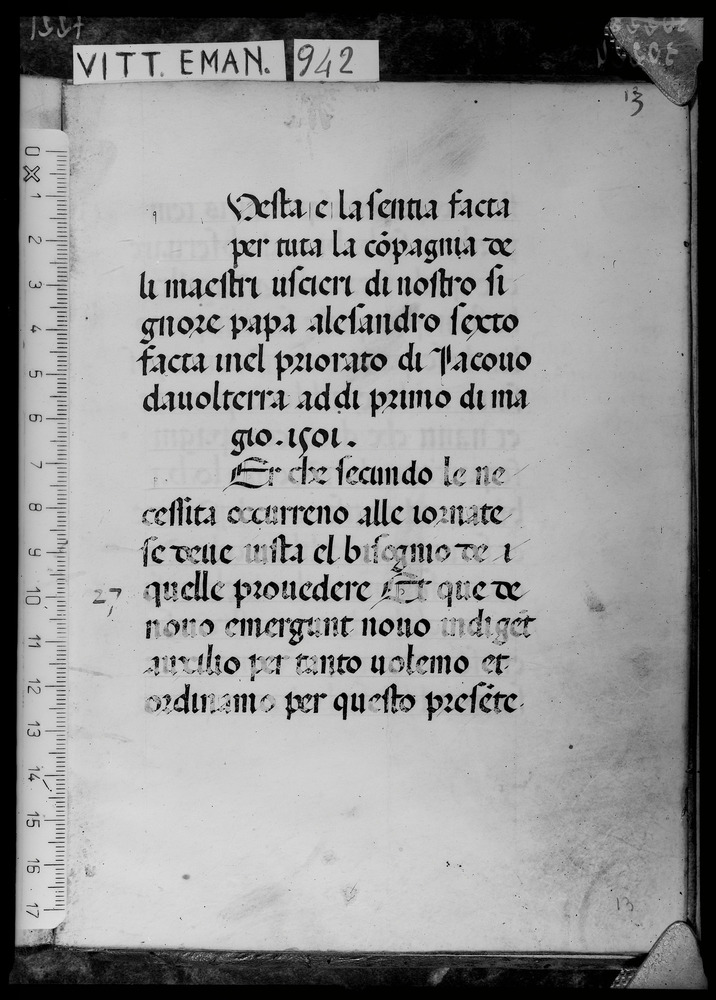 VITT. EMAN. 942
13
Vesta e la sentia facta
per tuta la cõpagnia de
li maestri uscieri di nostro si
gnore papa alesandro sexto
facta inel priorato di Iacouo
dauolterra ad di primo di ma
gio. 1501.
Et che secundo le ne
cessita occurreno alle iornate
se deue uista el bisogno de i
27 quelle prouedere Et que de
nouo emergunt nouo indigẽt
auxilio per tanto uolemo et
ordinamo per questo presẽte
13
0 1 2 3 4 5 6 7 8 9 10 11 12 13 14 15 16 17